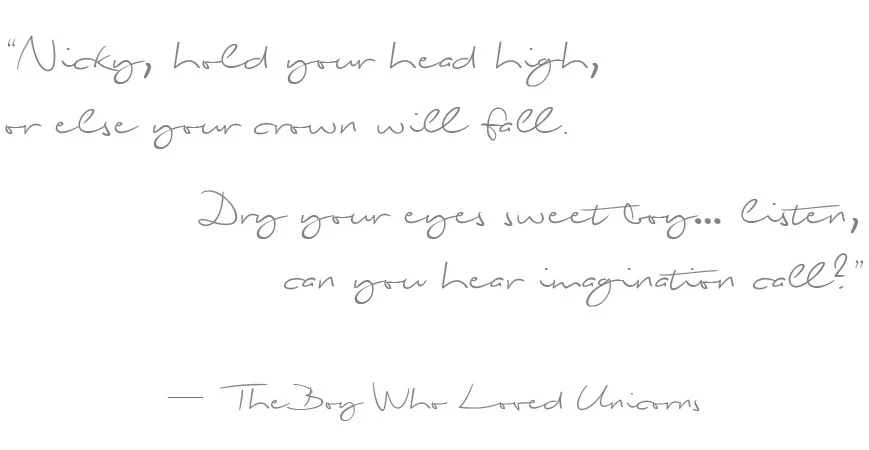 “Nicky, hold your head high,
or else your crown will fall.
Dry your eyes sweet boy... listen,
can you hear imagination call?”
— The Boy Who Loved Unicorns